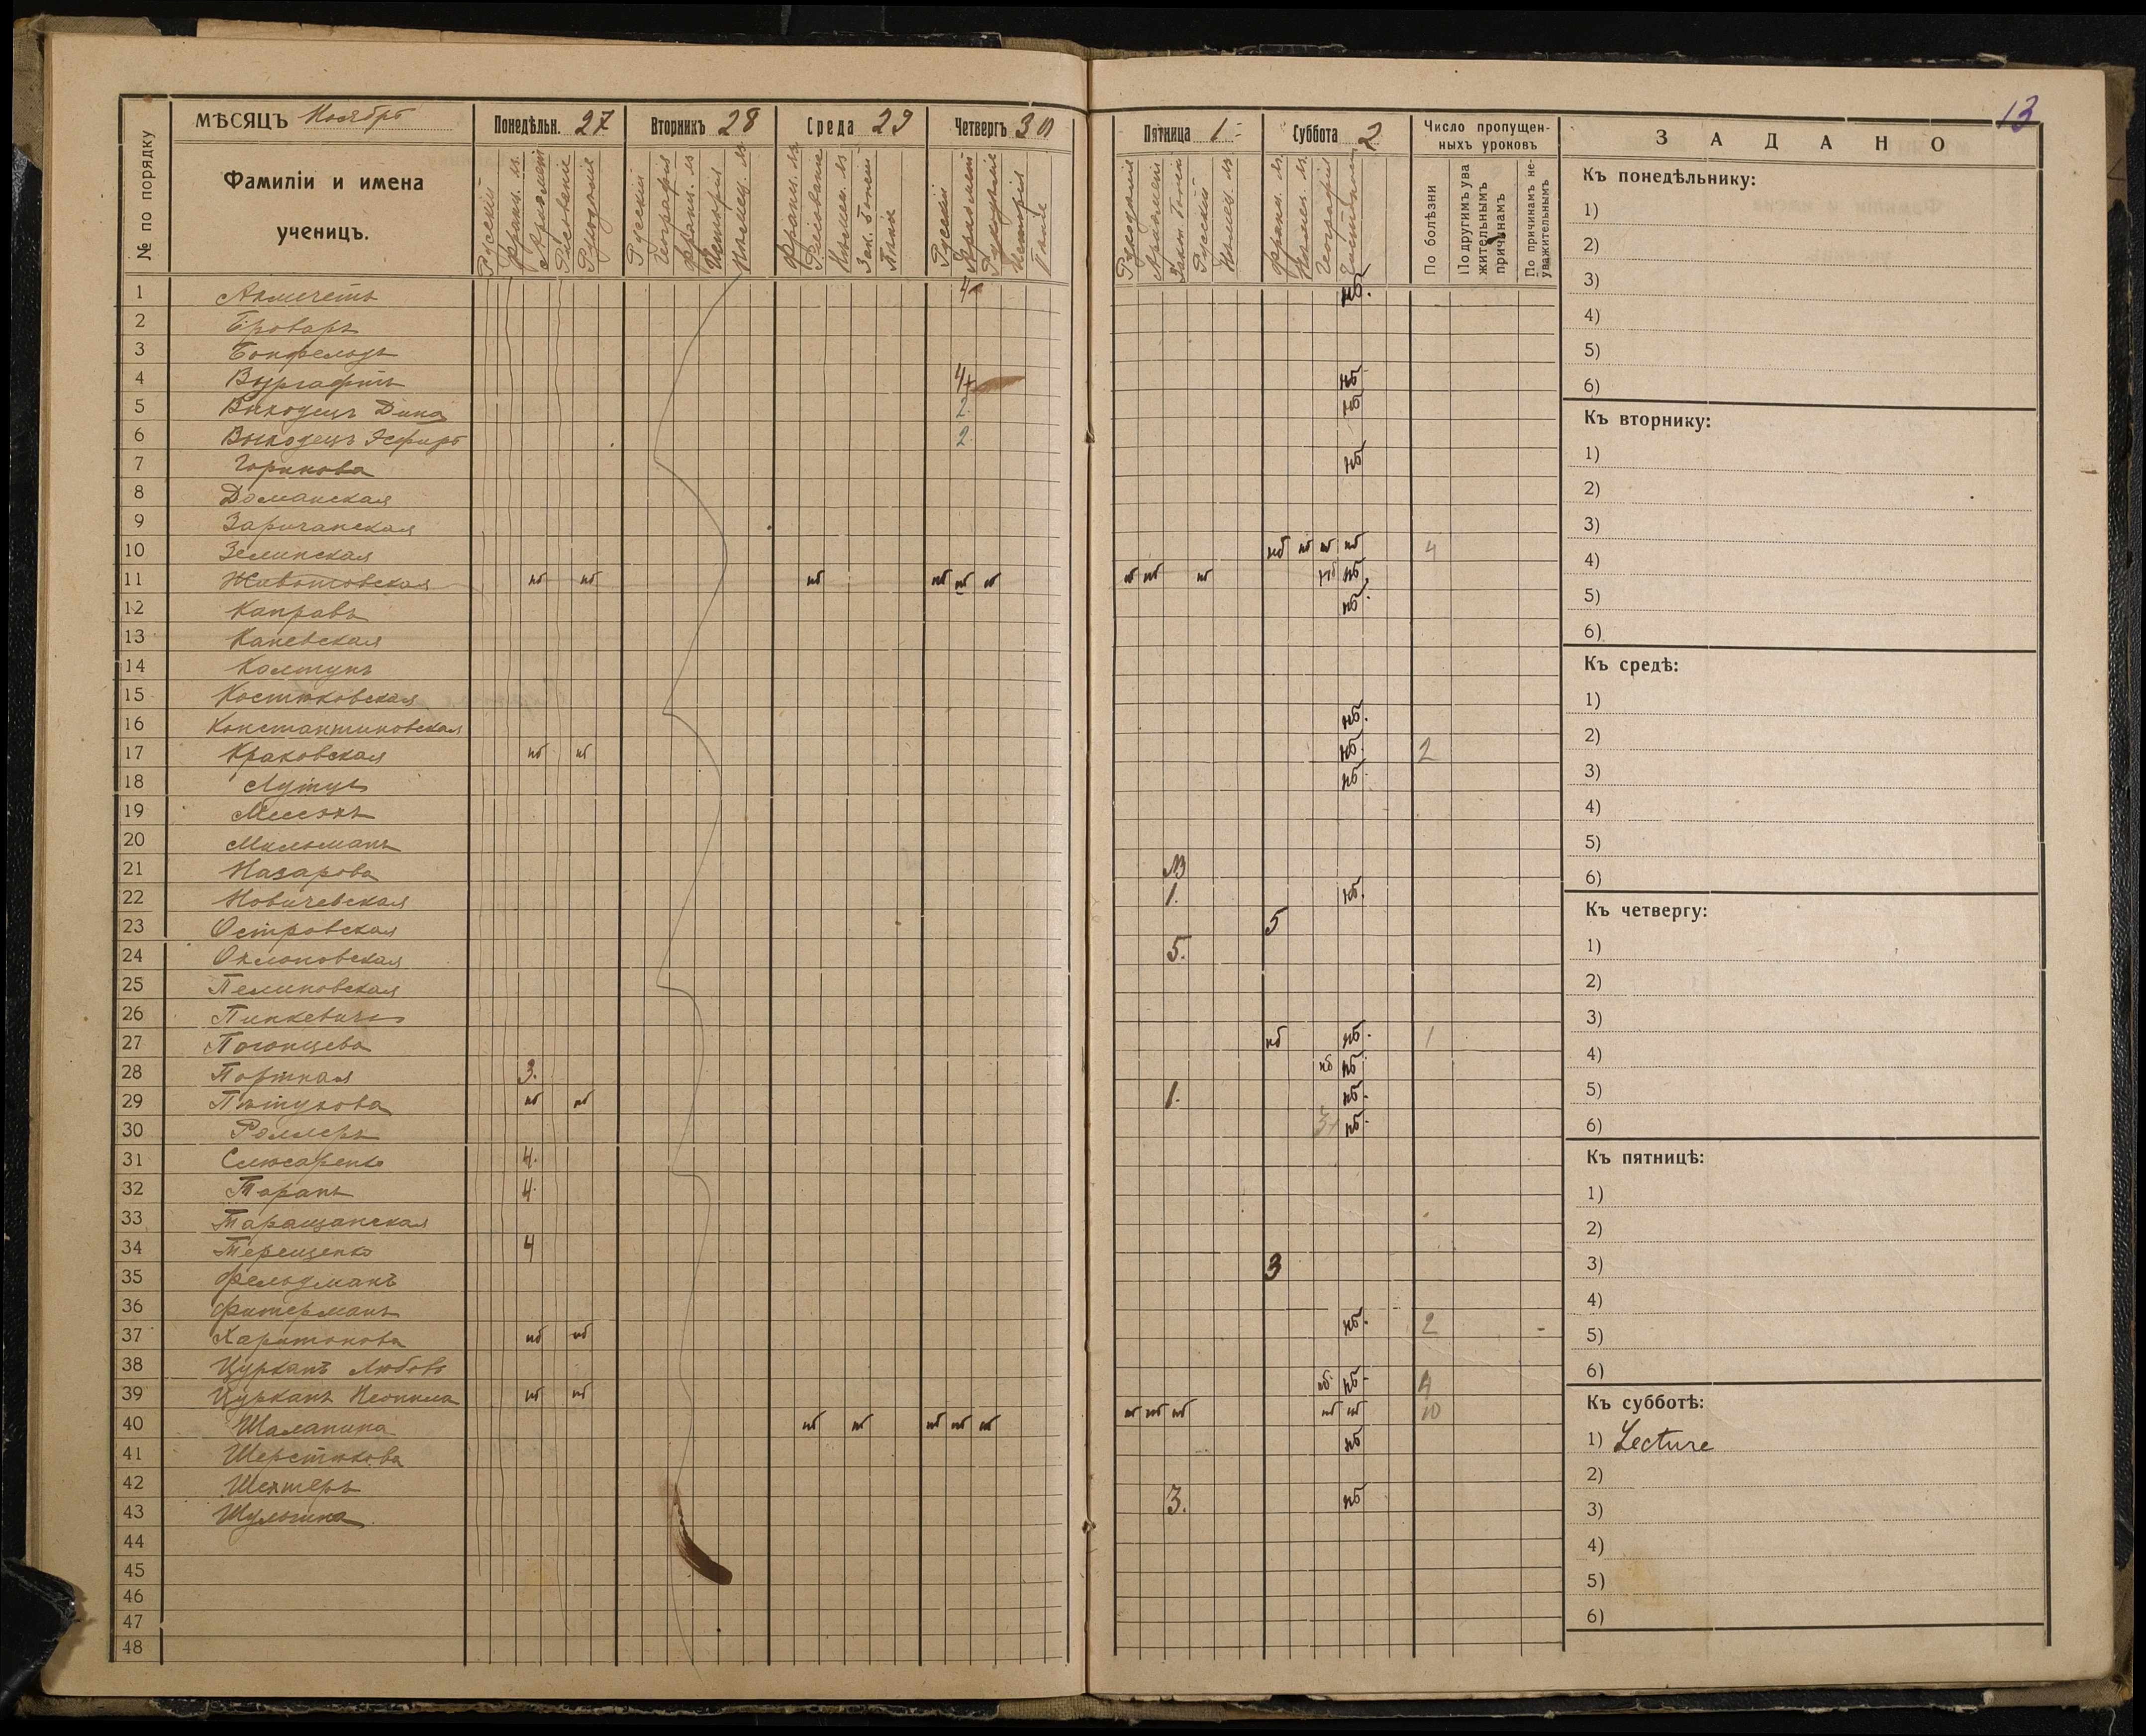 13
МѢСЯЦЪ Ноябрь
Понедѣльн. 27
Вторникъ 28
Среда 29
Четвергъ 30
Пятница 1
Суббота 2
Число пропущен-
ныхъ уроковъ
ЗАДАНО
№ по порядку
Фамиліи и имена
ученицъ.
Русскій
Франц. яз.
Арифмет
Рисованіе
Рукодѣліе
Русскій
Географія
Франц. яз
Исторія
Нѣмец. яз.
Франц. яз.
Рисованіе
Нѣмец. яз
Зак. Божій
Пѣніе
Русскій
Арифмет
Рукодѣліе
Исторія
Рукодѣліе
Арифмет
Зак. Божій
Русскій
Нѣмец. яз
Франц. яз.
Нѣмец. яз.
Географія
По болѣзни
По другимъ ува
жительнымъ
причинамъ
По причинамъ не-
уважительнымъ
1 4 нб.
2 Броваръ
3 Бонфельдъ
4 Вургафтъ 4+ нб
5 Выходецъ Дина 2 нб
6 Выходецъ Эсфирь 2
7 Горикова нб
8 Доманская
9 Заричанская
10 Зелинская нб нб нб нб 4
11 Животовская нб нб нб нб нб нб нб нб нб нб нб
12 нб.
13 Каневская
14 Колтунъ
15 Костюковская
16 Константиновская нб.
17 Краковская нб нб нб. 2
18 нб.
19
20 Мильманъ
21 Назарова
22 Новичевская 1. нб.
23 Островская 5
24 5.
25 Пелиновская
26 Пинкевичъ
27 Погонцева нб нб. 1
28 Портная 3. нб нб
29 Пѣтухова нб нб 1. нб.
30 Роллеръ 3+ нб.
31 Слюсаренко 4.
32 Таранъ 4.
33 Таращанская
34 Терещенко 4
35 Фельдманъ 3
36 Фитерманъ
37 Харитонова нб нб нб. 2
38 Цурканъ Любовь
39 Цурканъ Неонила нб нб нб. нб. 4
40 Шаланина нб нб нб нб нб нб нб нб нб нб 10
41 Шерстюкова нб
42 Шехтеръ
43 Шульгина 3. нб
44
45
46
47
48
Къ понедѣльнику:
1)
2)
3)
4)
5)
6)
Къ вторнику:
1)
2)
3)
4)
5)
6)
Къ средѣ:
1)
2)
3)
4)
5)
6)
Къ четвергу:
1)
2)
3)
4)
5)
6)
Къ пятницѣ:
1)
2)
3)
4)
5)
6)
Къ субботѣ:
1) Lecture
2)
3)
4)
5)
6)